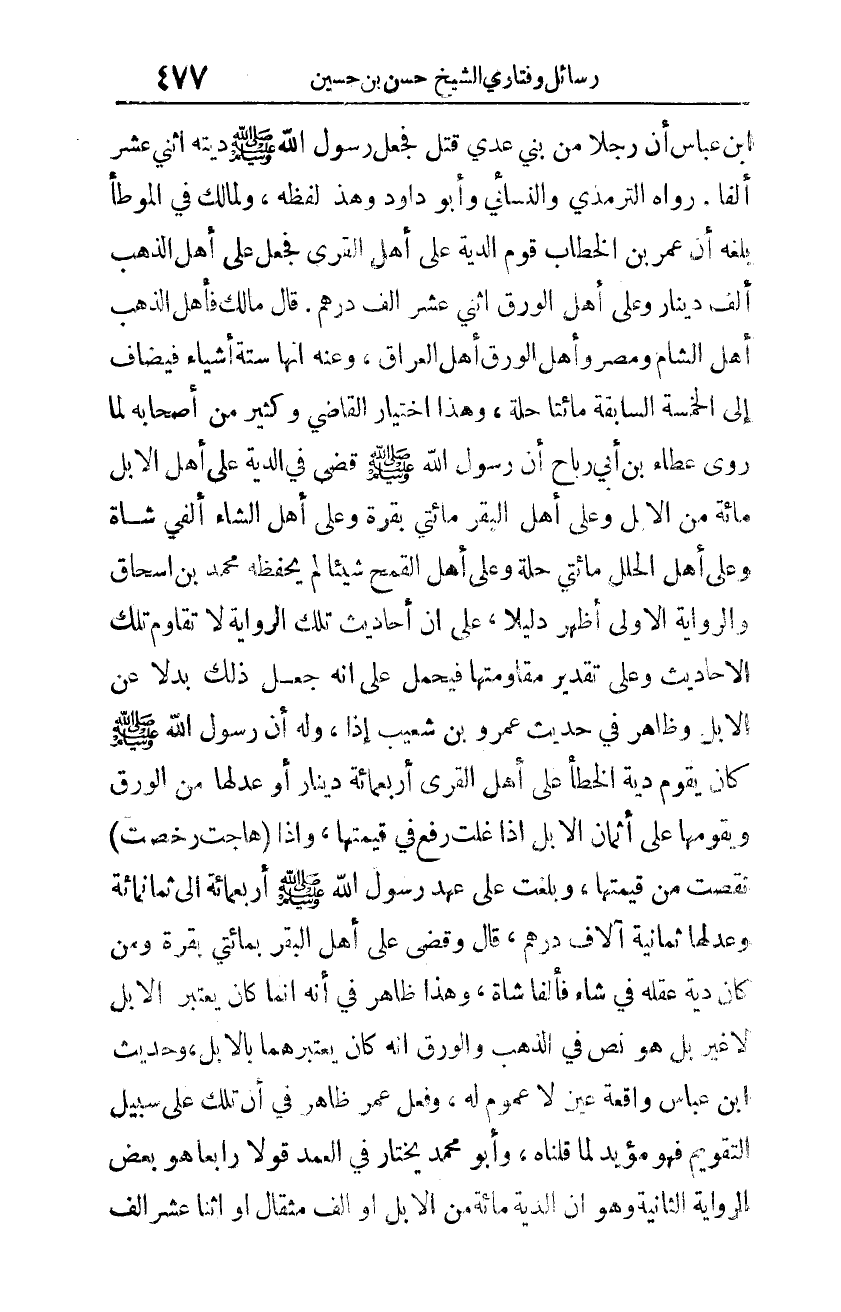 رسائل وفتاوي الشيخ حسن بن حسين ٤٧٧
ابن عباس أن رجلا من بني عدي قتل فجعل رسول الله ﷺ ديته اثني عشر
ألفا . رواه الترمذي والنسائي وأبو داود وهذ لفظه ، ولمالك في الموطأ
بلغه أن عمر بن الخطاب قوم الدية على أهل القرى فجعل على أهل الذهب
ألف دينار وعلى أهل الورق اثني عشر الف درهم . قال مالك فأهل الذهب
أهل الشام ومصر وأهل الورق أهل العراق ، وعنه انها ستة أشياء فيضاف
إلى الخمسة السابقة مائتا حلة ، وهذا اختيار القاضي وكثير من أصحابه لما
روى عطاء بن أبي رباح أن رسول الله ﷺ قضى في الدية على أهل الابل
مائة من الابل وعلى أهل البقر مائتي بقرة وعلى أهل الشاء ألفي شاة
وعلى أهل الحلل مائتي حلة وعلى أهل القمح شيئا لم يحفظه محمد بن اسحاق
والرواية الاولى أظهر دليلا ، على ان أحاديث تلك الرواية لا تقاوم تلك
الاحاديث وعلى تقدير مقاومتها فيحمل على انه جعل ذلك بدلا عن
الابل وظاهر في حديث عمرو بن شعيب إذا ، وله أن رسول الله ﷺ
كان يقوم دية الخطأ على أهل القرى أربعمائة دينار أو عدلها من الورق
ويقومها على أثمان الابل اذا غلت رفع في قيمتها ، واذا (هاجت رخصت)
نقصت من قيمتها ، وبلغت على عهد رسول الله ﷺ أربعمائة الى ثمانمائة
وعدلها ثمانية آلاف درهم ، قال وقضى على أهل البقر بمائتي بقرة ومن
كان دية عقله في شاء فألفا شاة ، وهذا ظاهر في أنه انما كان يعتبر الابل
لاغير بل هو نص في الذهب والورق انه كان يعتبرهما بالابل ، وحديث
ابن عباس واقعة عين لا عموم له ، وفعل عمر ظاهر في أن تلك على سبيل
التقويم فهو مؤيد لما قلناه ، وأبو محمد يختار في العمد قولا رابعا هو بعض
الرواية الثانية وهو ان الدية مائة من الابل او الف مثقال او اثنا عشر الف